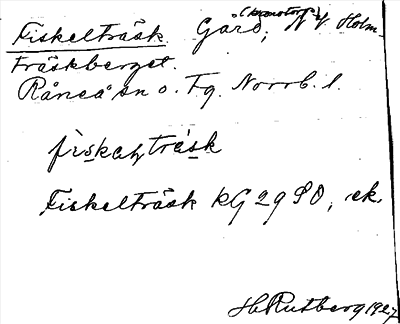 Fiskelträsk. Gård, N V Holm-
träskberget.
Råneå sn o. Tg. Norrb. l.
fiskah,träsk
Fiskelträsk KG 2980, ek.
H. Rutberg 1927